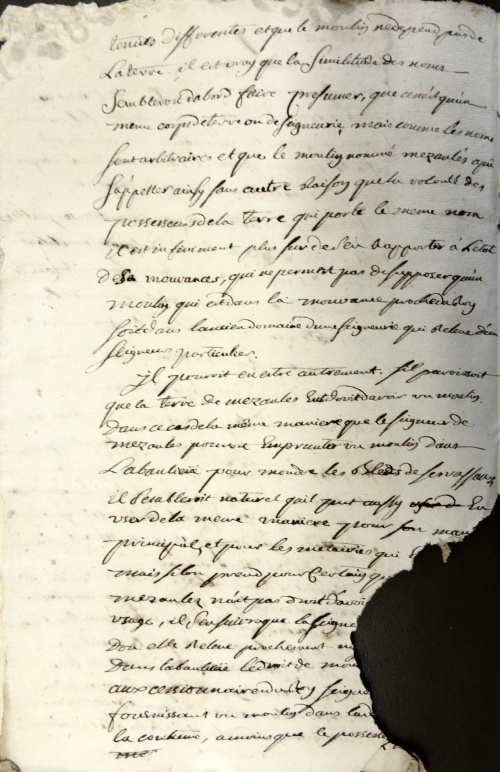 tenues differentes et que le moulin ne depend pas de
La terre. il est vray que la Similitude des noms
Semble d'abord faire presumer, que ce n'est qu'un
meme corps de terre ou de Seigneurie, mais comme les noms
sont arbitraires et que le moulin nommé mezaulés a pu
s'appeller ainsy sans autre Raison que la volonté des
possesseurs de la terre qui porte le meme nom
il est infiniment plus sur de s'en Rapporter à l'etat
des mouvances, qui ne permet pas de supposer qu'un
moulin qui est dans la mouvance proche du Roy
soit dans l'ancien domaine d'une seigneurie qui Releve d'un
seigneur particulier.
Il pourroit en estre autrement. S'il paroissoit
que la terre de mezaules Eut droit d'avoir un moulin
dans ce cas de la même maniere que le seigneur de
mezaules pouvoit Emprunter un moulin dans
La banlieue pour moudre les bleds de ses vassaux
il Sembleroit naturel qu'il put aussy En
user de la meme maniere pour son
principal, et pour les metairies qui
mais si l'on prend pour Certain
mezaulez n'ait pas droit
usage, il s'ensuivra que la
Don elle Releve prochement
Dans la banlieue le droit de
aux cessionnaires du Roy
fournissant un moulin dans
la coutume, a moins que le